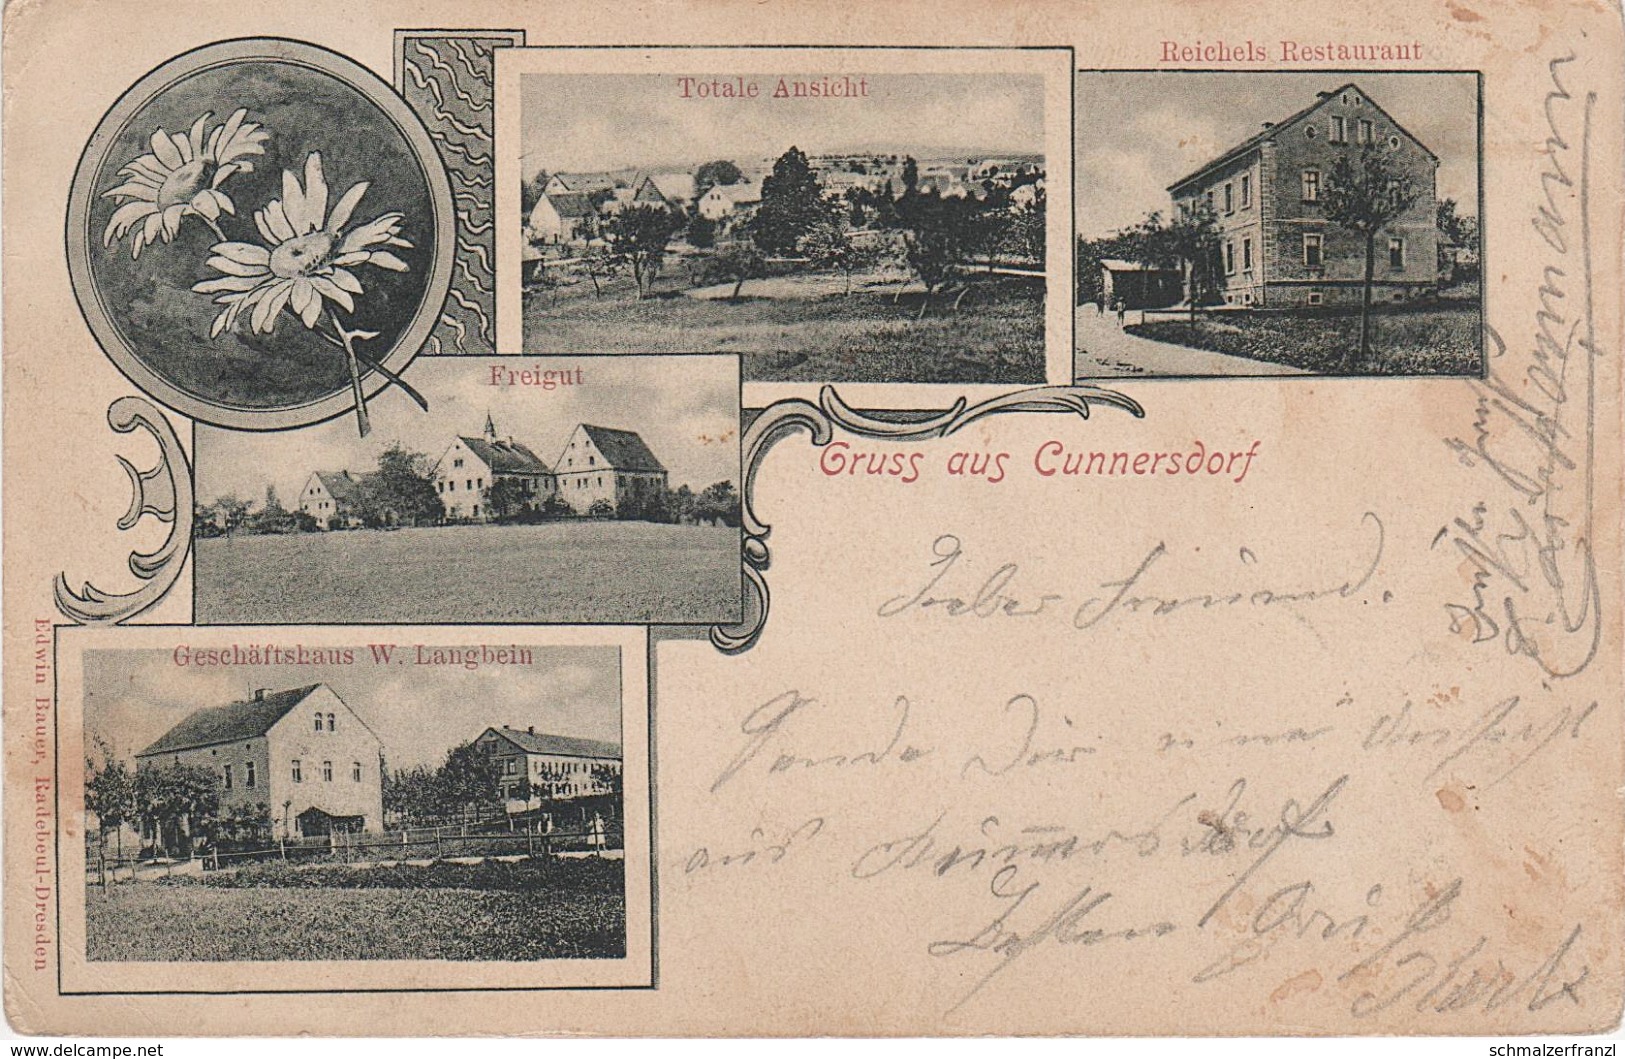 Reichels Restaurant
Totale Ansicht
Freigut
Gruss aus Cunnersdorf
Geschäftshaus W. Langbein
Edwin Bauer, Radebeul-Dresden
Lieber Freund.
Sende Dir eine Ansicht
aus Kunnersdorf
Besten Gruß
delcampe.net
schmalzerfranzl